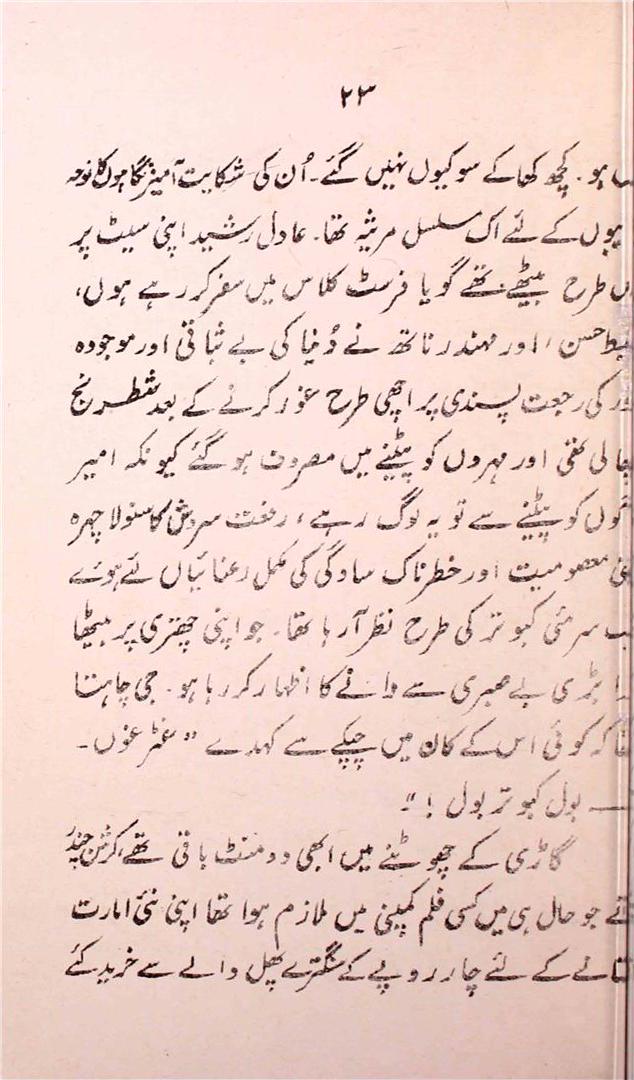 ۲۳
ہو۔ کچھ کھا کے سو کیوں نہیں گئے۔ اُن کی شکایت آمیز نگاہوں کا نوحہ
کے لئے اک مسلسل مرثیہ تھا۔ عادل رشید اپنی سیٹ پر
طرح بیٹھے تھے گویا فرسٹ کلاس میں سفر کر رہے ہوں،
حسن، اور مہندر ناتھ نے دُنیا کی بے ثباتی اور موجودہ
کی رجعت پسندی پر اچھی طرح غور کرنے کے بعد شطرنج
لی تھی اور مہروں کو پیٹنے میں مصروف ہو گئے کیونکہ امیر
کو پیٹنے سے تو یہ لوگ رہے، رفعت سروش کا سنولا چہرہ
معصومیت اور خطرناک سادگی کی مکمل رعنائیاں لئے ہوئے
سرمئی کبوتر کی طرح نظر آ رہا تھا۔ جو اپنی چھتری پر بیٹھا
بڑی بے صبری سے دانے کا اظہار کر رہا ہو۔ جی چاہتا
کہ کوئی اس کے کان میں چپکے سے کہدے "غٹر غوں۔
بول کبوتر بول!"
گاڑی کے چھوٹنے میں ابھی دو منٹ باقی تھے، کرشن چندر
جو حال ہی میں کسی فلم کمپنی میں ملازم ہوا تھا اپنی نئی امارت
کے لئے چار روپے کے سنگترے پھل والے سے خرید لئے